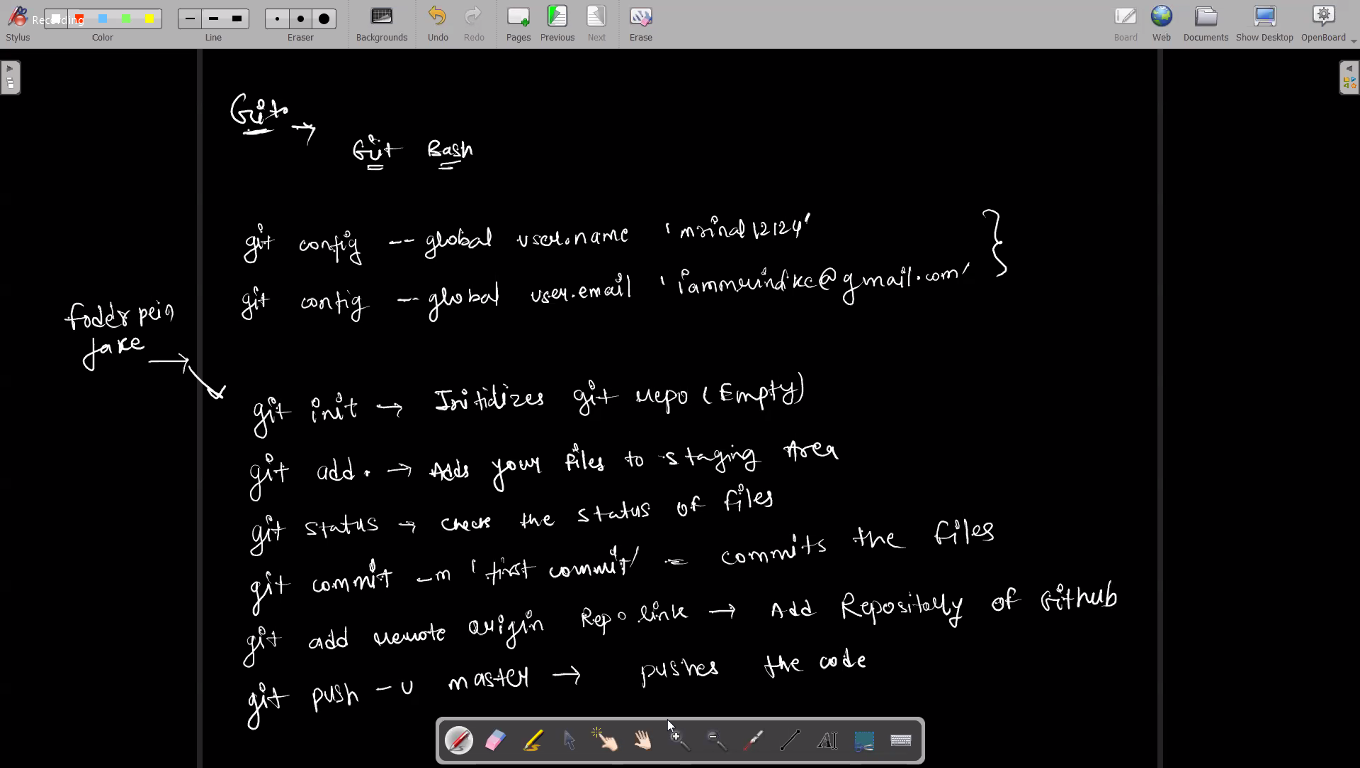 Recording
Stylus Color Line Eraser Backgrounds Undo Redo Pages Previous Next Erase Board Web Documents Show Desktop OpenBoard
Git →
Git Bash
git config --global user.name 'mrinal12124'
git config --global user.email '@gmail.com'
→
git init → Initializes git repo (Empty)
git add . → Adds your files to staging Area
git status → Check the status of files
git commit -m 'first commit' = commits the files
git add remote origin Repo link → Add Repository of Github
git push -u master → pushes the code